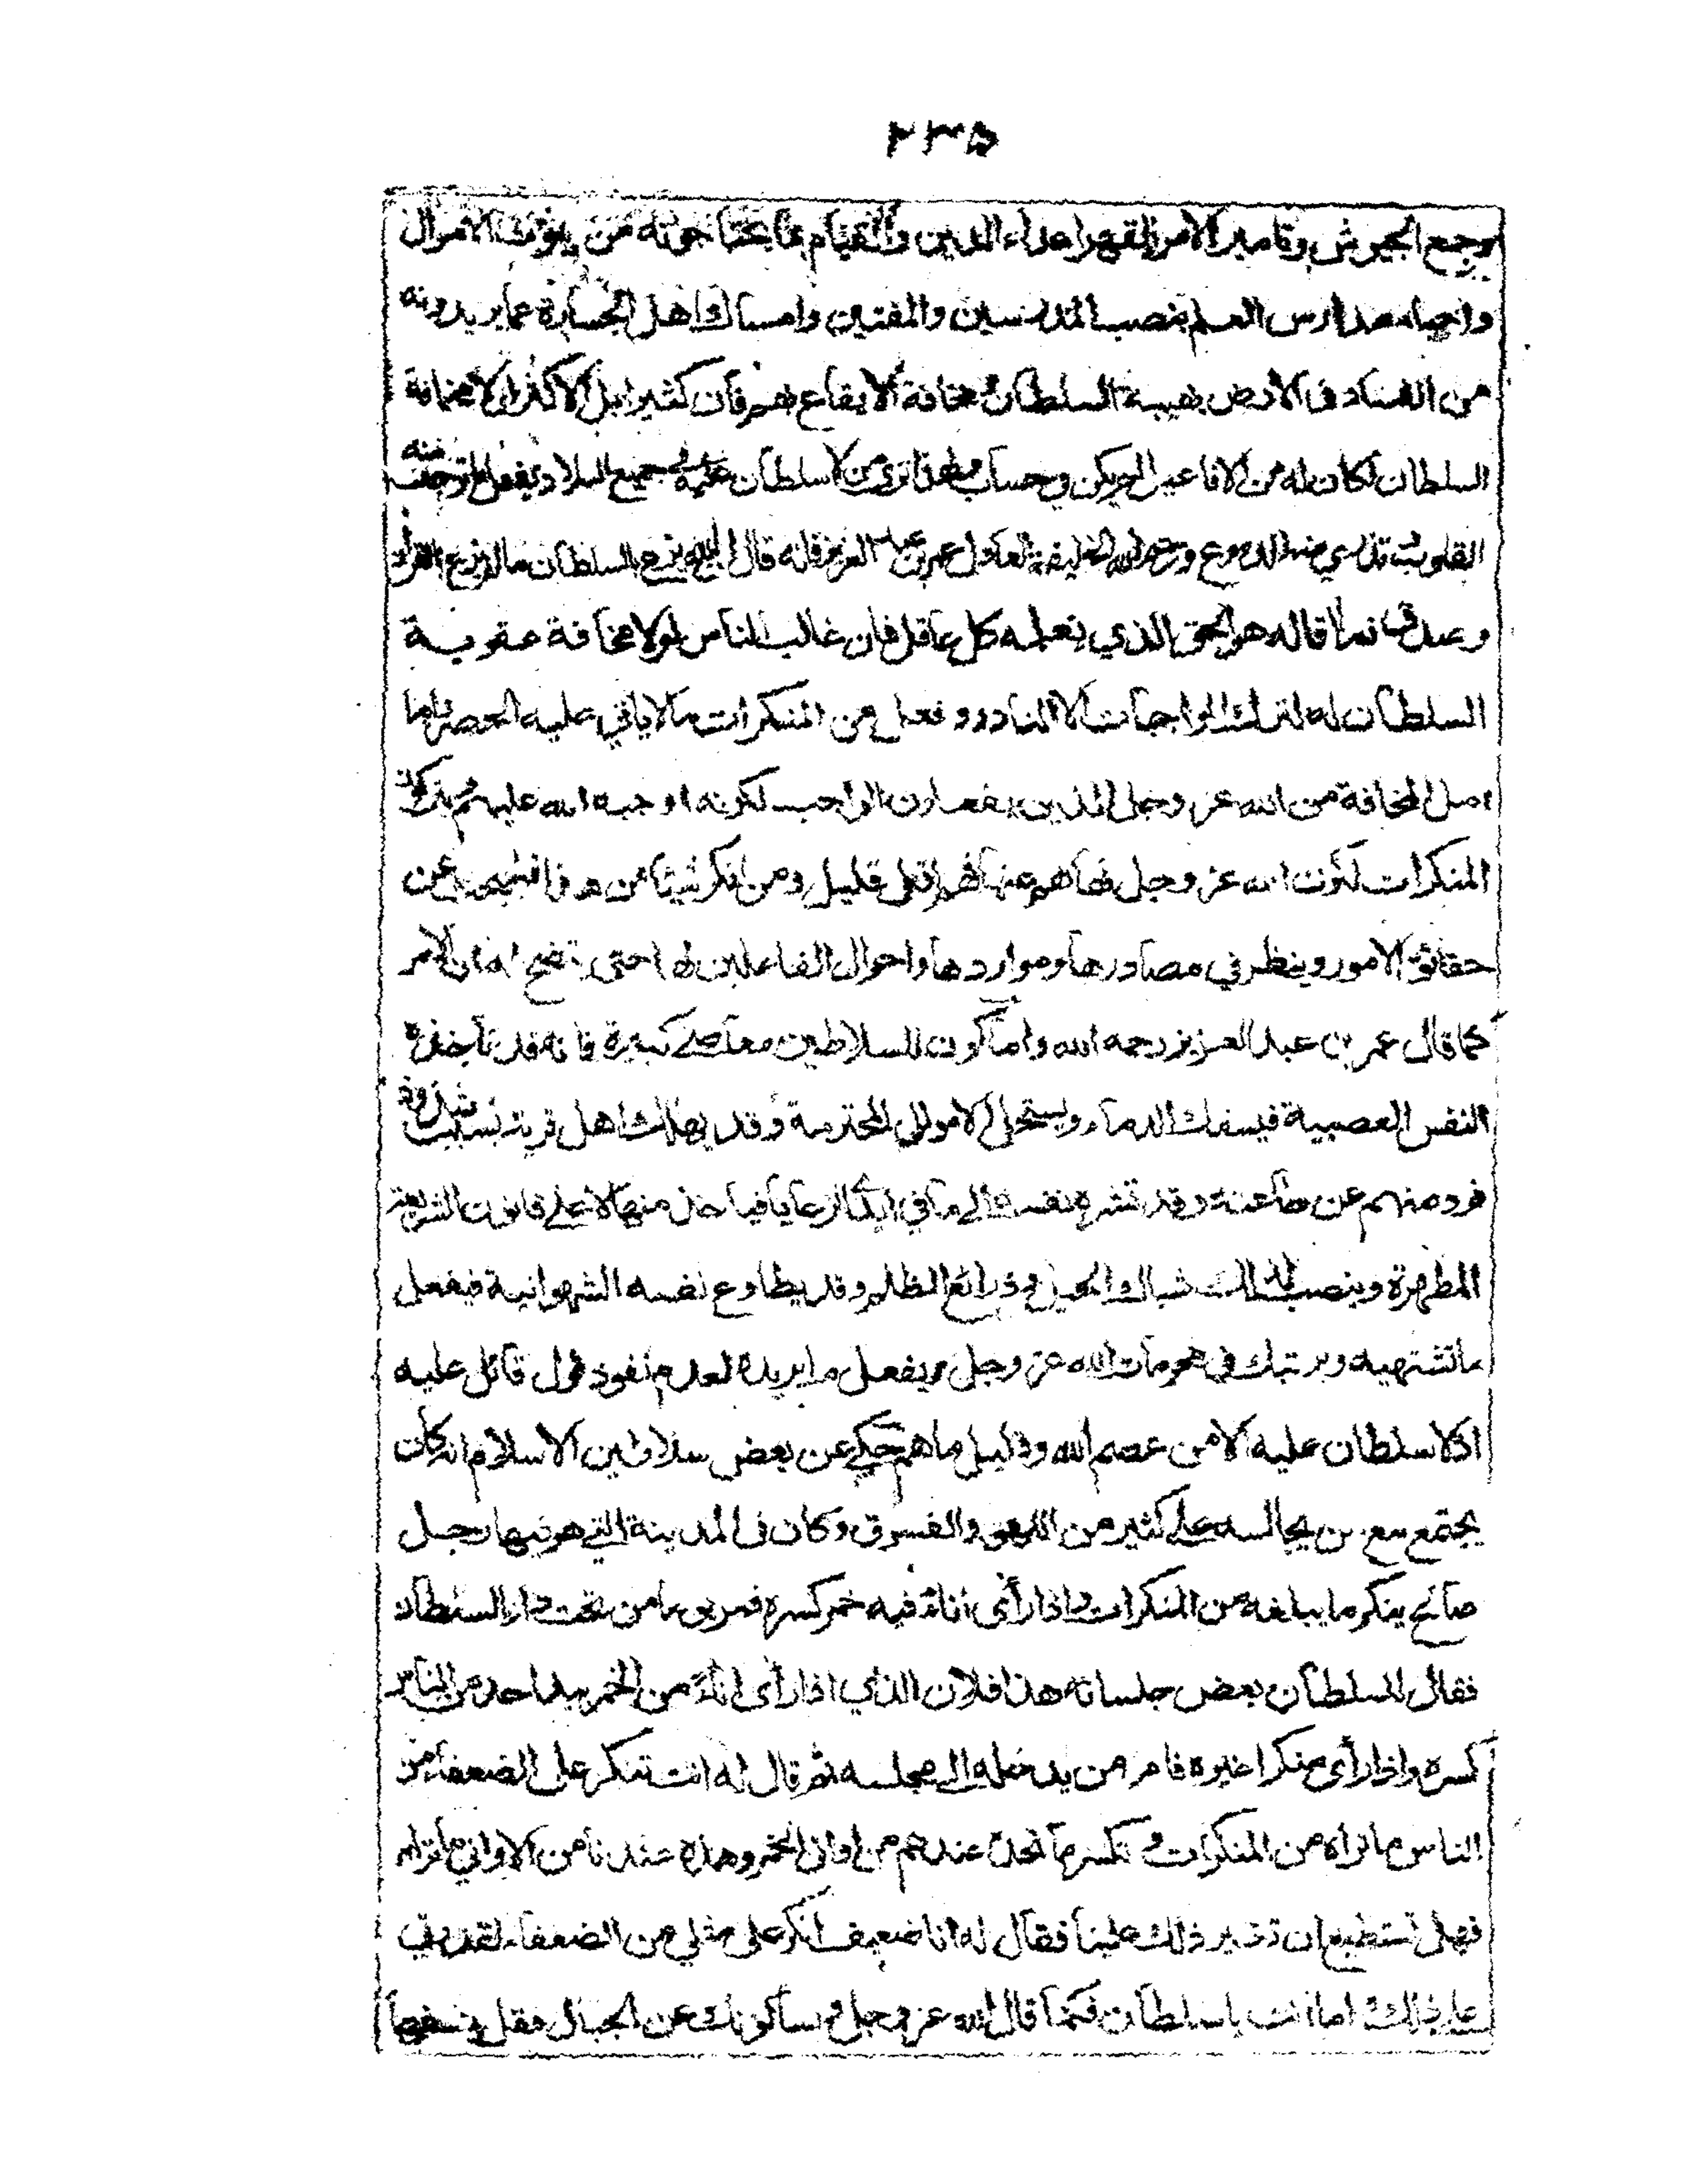 ٢٣٥
وجمع الجيوش وتامير الامر القهر اعداء الدين والقيام بما يحتاجونه من بيوت الاموال
واحياء مدارس العلم بنصب المدرسين والمفتين وامساك اهل الجسارة عما يريدونه
من الفساد في الارض بهيبة السلطان ومخافة الايقاع بهم فان كثيرا بل الاكثر لولا مخافة
السلطان لكان له من الافاعيل لم يكن في حساب من لا سلطان عليه في جميع البلاد يفعل ما توجف منه
القلوب وتدمي منه الدموع ورحم الله الخليفة العادل عمر بن عبد العزيز فانه قال ان الله يزع بالسلطان ما لا يزع بالقران
وصدق فيما قاله هو الحق الذي يعلمه كل عاقل فان غالب الناس لولا مخافة عقوبة
السلطان له لترك الواجبات الا النادر وفعل من المنكرات ما لا ياتي عليه الحصر واما
اهل المخافة من الله عز وجل الذين يفعلون الواجب لكونه اوجبه الله عليهم ويتركون
المنكرات لكون الله عز وجل نهاهم عنها فهم اقل قليل ومن انكر شيئا من هذا فليبحث عن
حقائق الامور وينظر في مصادرها ومواردها واحوال الفاعلين لها حتى يتضح له ان الامر
كما قال عمر بن عبد العزيز رحمه الله واما كون للسلاطين معاصي كبيرة فانه قد تأخذه
النفس العصبية فيسفك الدماء ويستحل الاموال المحترمة وقد يهلك اهل قرية بسبب شذوذ
فرد منهم عن طاعته وقد تشره نفسه الى ما في ايدي الرعايا فياخذ منها لا على قانون الشريعة
المطهرة وينصب لذلك شباك الحيل وذرائع الظلم وقد يطاوع نفسه الشهوانية فيفعل
ما تشتهيه ويرتبك في محرمات الله عز وجل ويفعل ما يريده لعدم نفوذ قول قائل عليه
اذ لا سلطان عليه الا من عصم الله وقليل ما هم حكي عن بعض سلاطين الاسلام انه كان
يجتمع مع من يجالسه على كثير من اللهو والفسوق وكان في المدينة التي هو فيها رجل
صالح ينكر ما يبلغه من المنكرات واذا رأى اناء فيه خمر كسره فمر يوما من تحت دار السلطان
فقال للسلطان بعض جلسائه هذا فلان الذي اذا رأى اناء من الخمر بيد احد من الناس
كسره واذا رأى منكرا غيره فامر من يدخله الى مجلسه ثم قال له انت تنكر على الضعفاء من
الناس ما تراه من المنكرات وتكسر ما تجده عندهم من اواني الخمر وهذه عندنا من الاواني ما تراه
فهل تستطيع ان تغير ذلك علينا فقال له انا ضعيف انكر على مثلي من الضعفاء لقدرتي
على ذلك واما انت يا سلطان فكما قال الله عز وجل ويسألونك عن الجبال فقل ينسفها